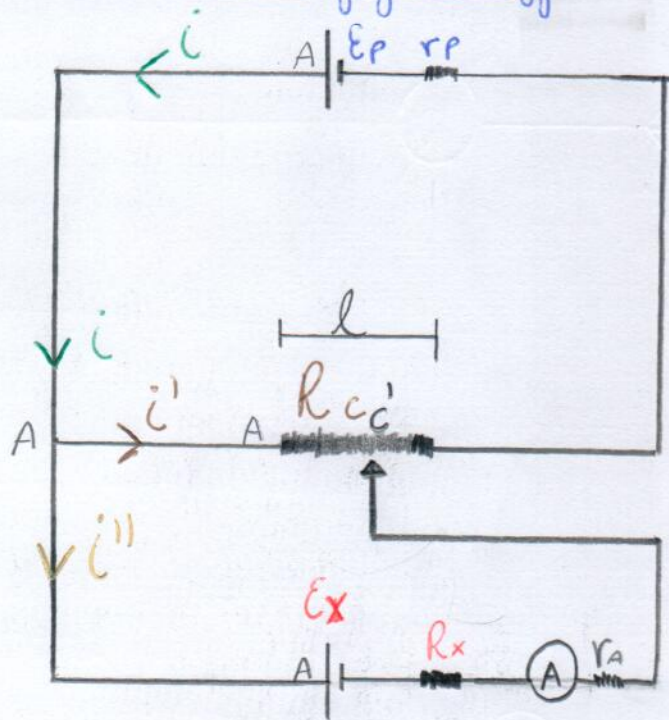 i
A
Ep rp
i
l
A
i'
A
R c c'
i''
A
Ex
Rx
A
rA